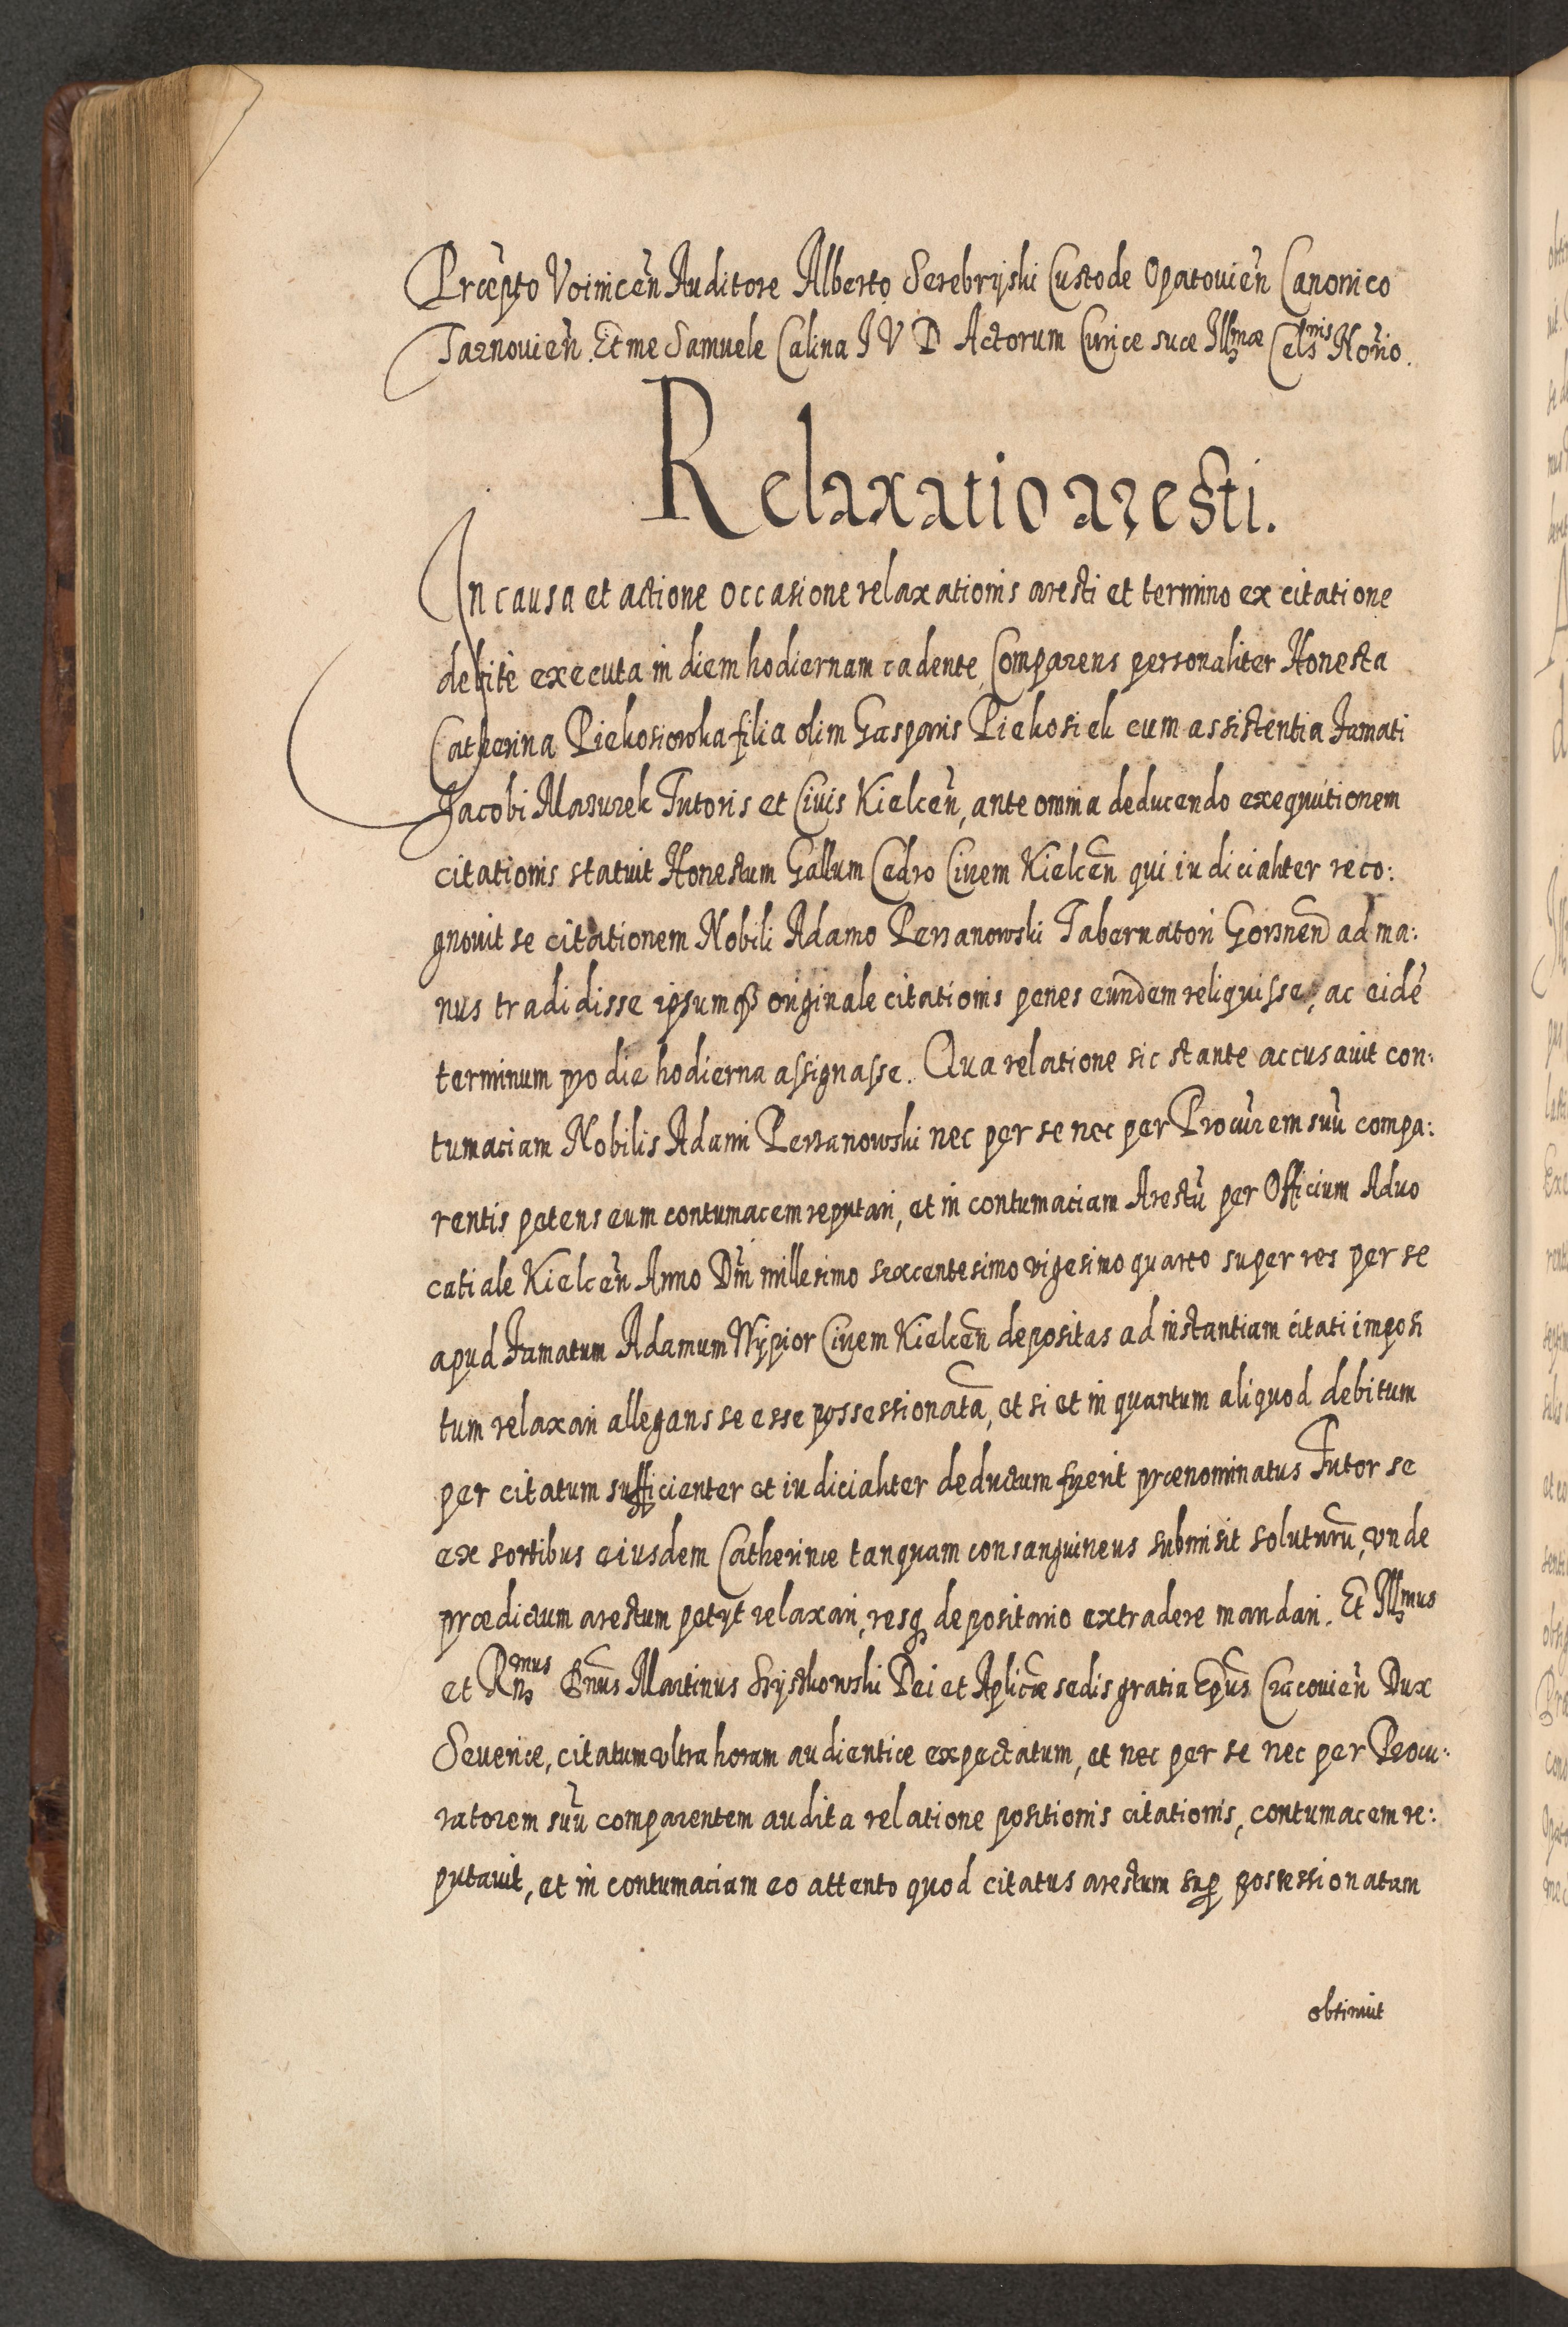 Præpto Voinicen̄ Auditore Alberto Serebryski Custode Opatovien̄ Canonico
Tarnovien̄. Et me Samuele Calina I V D Actorum Curiæ suæ Illmæ Celsnis Norio.
Relaxatio aresti.
In causa et actione occasione relaxationis aresti et termino ex citatione
debitè executa in diem hodiernam cadente, Comparens personaliter Honesta
Catherina Piekosiowska filia olim Gasparis Piekosiek cum assistentia Famati
Jacobi Mazurek Tutoris et Civis Kielcen̄, ante omnia deducendo exequutionem
citationis statuit Honestum Gallum Cedro Civem Kielcen̄ qui iudicialiter reco:
gnovit se citationem Nobili Adamo Perzanowski Tabernatori Gornen̄ ad ma:
nus tradidisse ipsumq3 originale citationis penes eundem reliquisse, ac eidē
terminum pro die hodierna assignasse. Qua relatione sic stante accusavit con:
tumaciam Nobilis Adami Perzanowski nec per se nec per Procūrem suū compa:
rentis petens eum contumacem reputari, et in contumaciam Arestū per Officium Advo
catiale Kielcen̄ Anno Dn̄i millesimo sexcentesimo vigesimo quarto super res per se
apud Famatum Adamum Wypior Civem Kielcen̄ depositas ad instantiam citati imposi
tum relaxari allegans se esse possessionatā, et si et in quantum aliquod debitum
per citatum sufficienter et iudicialiter deductum fuerit prænominatus Tutor se
ex sortibus eiusdem Catherinæ tanquam consanguineus submisit soluturū, vnde
prædictum arestum petyt relaxari, resq3 depositario extradere mandari. Et Illmus
et Rnmus Dn̄us Martinus Szyszkowski Dei et Aplicæ sedis gratia Epūs Cracovien̄ Dux
Severiæ, citatum vltra horam audientiæ expectatum, et nec per se nec per Procu:
ratorem suū comparentem audita relatione positionis citationis, contumacem re:
putavit, et in contumaciam eo attento quod citatus arestum sup possessionatam
obtinuit